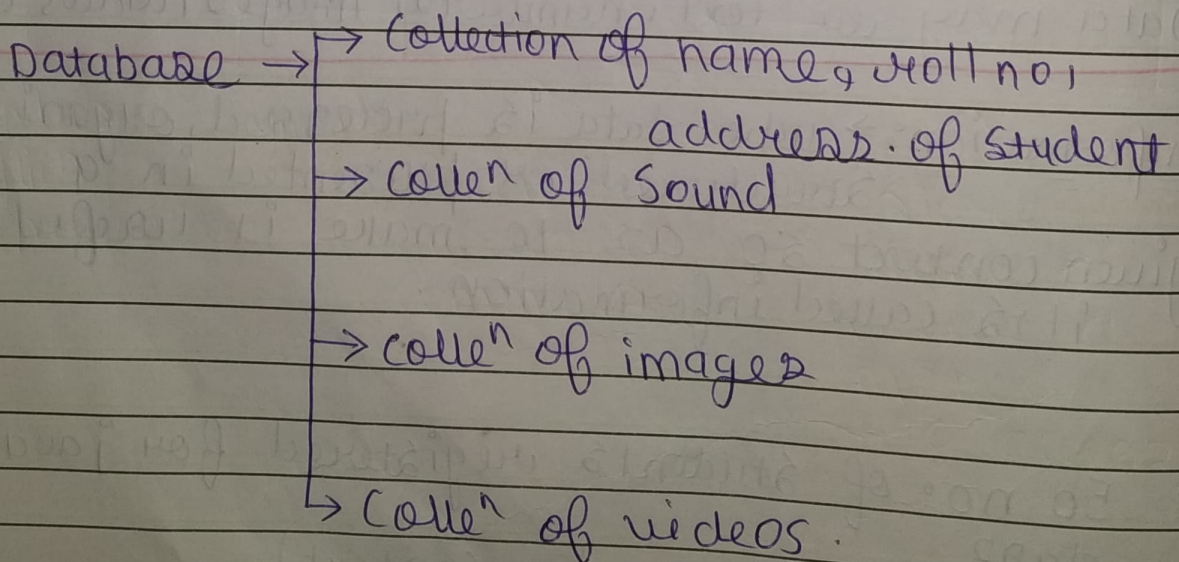 Database → → Collection of name, roll no,
address. of Student
→ colleⁿ of Sound
→ colleⁿ of images
→ Colleⁿ of videos.